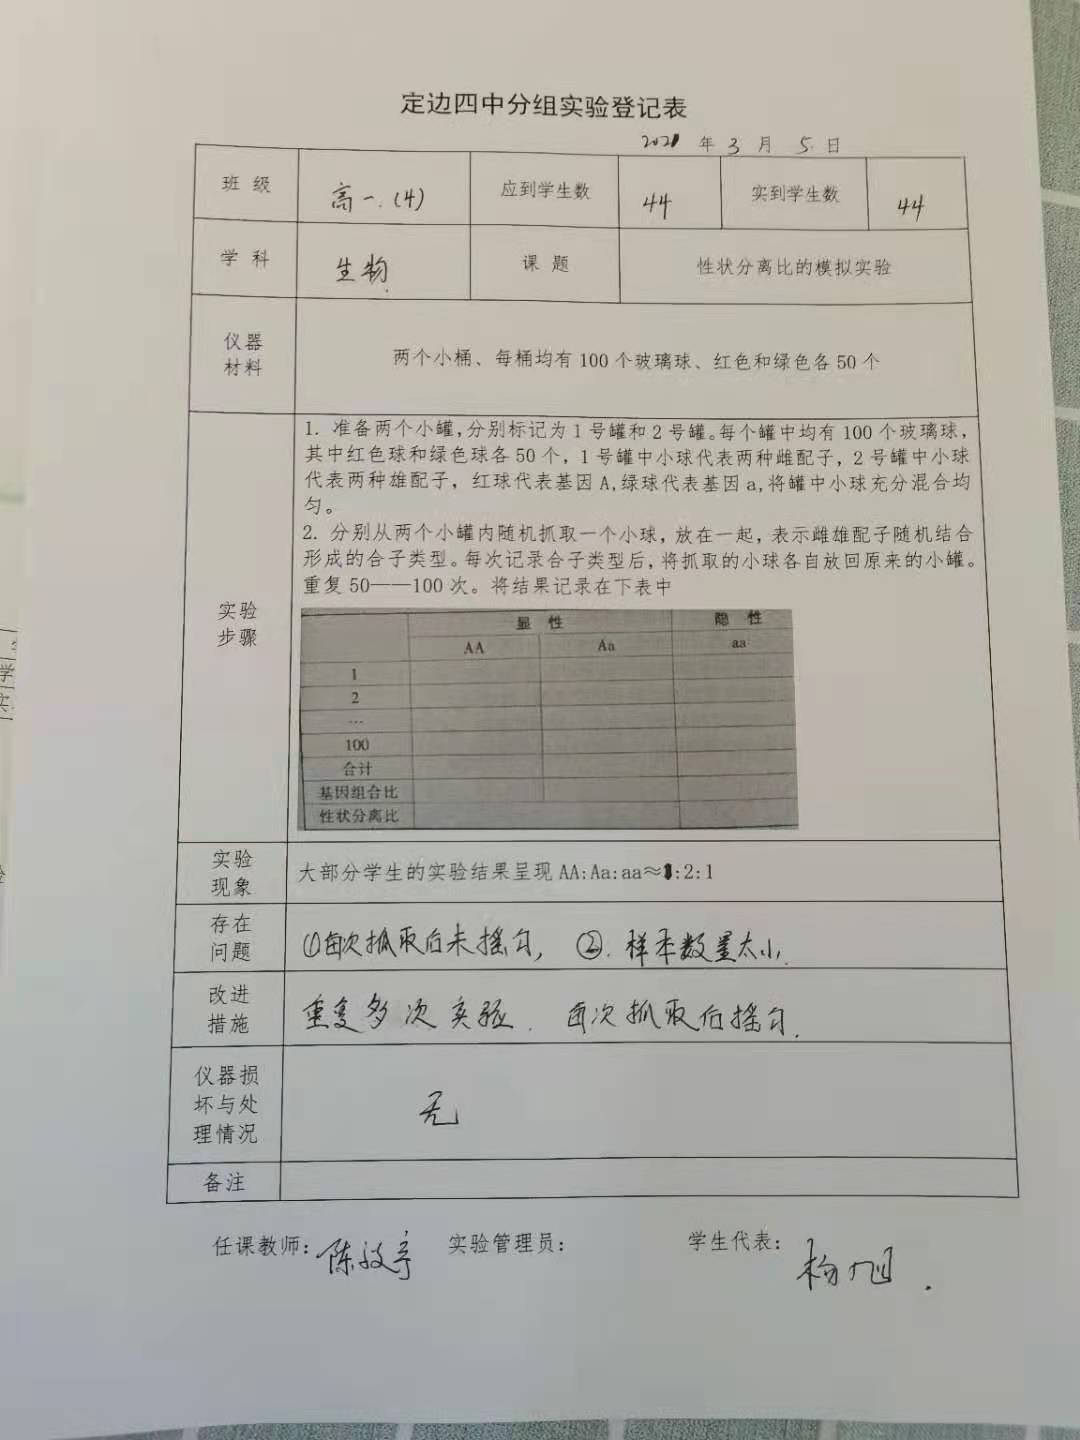 定边四中分组实验登记表
2021 年 3 月 5 日
班 级 高一.(4) 应到学生数 44 实到学生数 44
学 科 生物 课 题 性状分离比的模拟实验
仪器
材料
两个小桶、每桶均有 100 个玻璃球、红色和绿色各 50 个
实验
步骤
1. 准备两个小罐,分别标记为 1 号罐和 2 号罐。每个罐中均有 100 个玻璃球,
其中红色球和绿色球各 50 个，1 号罐中小球代表两种雌配子，2 号罐中小球
代表两种雄配子，红球代表基因 A,绿球代表基因 a,将罐中小球充分混合均
匀。
2. 分别从两个小罐内随机抓取一个小球，放在一起，表示雌雄配子随机结合
形成的合子类型。每次记录合子类型后,将抓取的小球各自放回原来的小罐。
重复 50——100 次。将结果记录在下表中
显 性 隐 性
AA Aa aa
1
2
…
100
合计
基因组合比
性状分离比
实验
现象
大部分学生的实验结果呈现 AA:Aa:aa≈1:2:1
存在
问题
①每次抓取后未摇匀, ②.样本数量太小.
改进
措施
重复多次实验. 每次抓取后摇匀.
仪器损
坏与处
理情况
无
备注
任课教师: 陈 实验管理员: 学生代表: 杨旭.